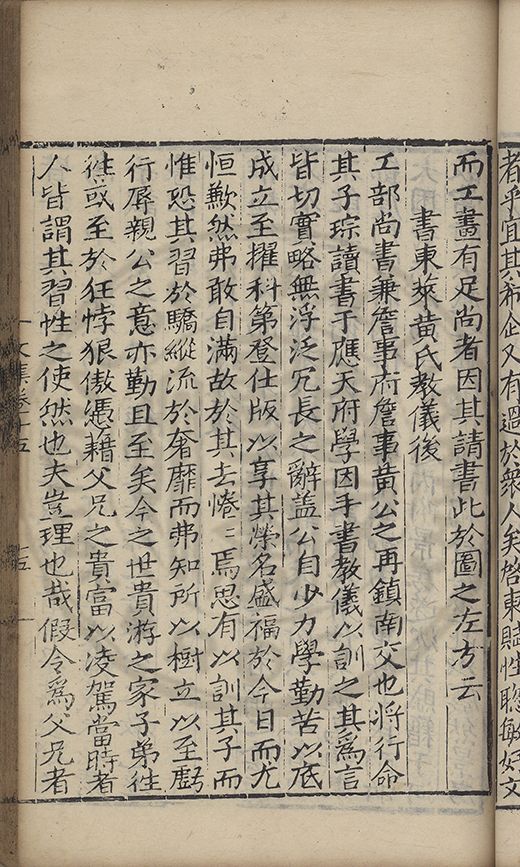 者乎宜其希企又有過於衆人矣啓東賦性聡敏好文
而工畫有足尚者因其請書此於圖之左方云
書東萊黄氏教儀後
工部尚書兼詹事府詹事黄公之再鎮南交也將行命
其子琮讀書于應天府學因手書教儀以訓之其爲言
皆切實略無浮泛冗長之辭盖公自少力學勤苦以底
成立至擢科第登仕版以享其榮名盛福於今日而尤
恒歉然弗敢自滿故於其去惓〻焉思有以訓其子而
惟恐其習於驕縱流於奢靡而弗知所以樹立以至虧
行辱親公之意亦勤且至矣今之世貴游之家子弟徃
徃或至於狂悖狠傲憑藉父兄之貴富以凌駕當時者
人皆謂其習性之使然也夫豈理也哉假令爲父兄者
文集卷十五